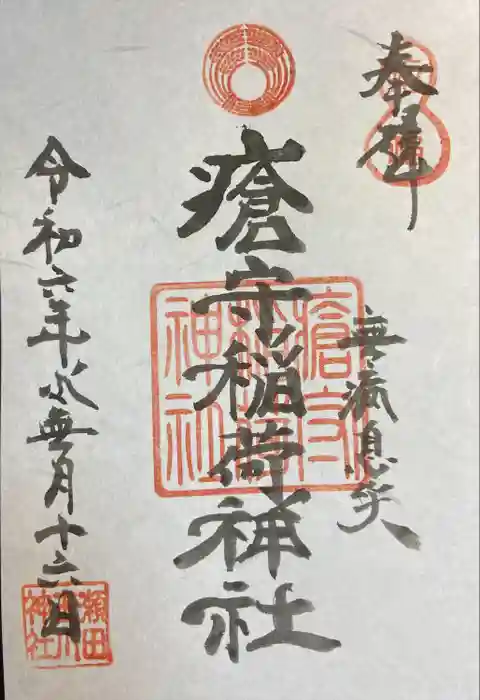 奉拝
無病息笑
瘡守稲荷神社
令和六年水無月十六日
瘡守
稲荷
神社
瀬田
玉川
神社